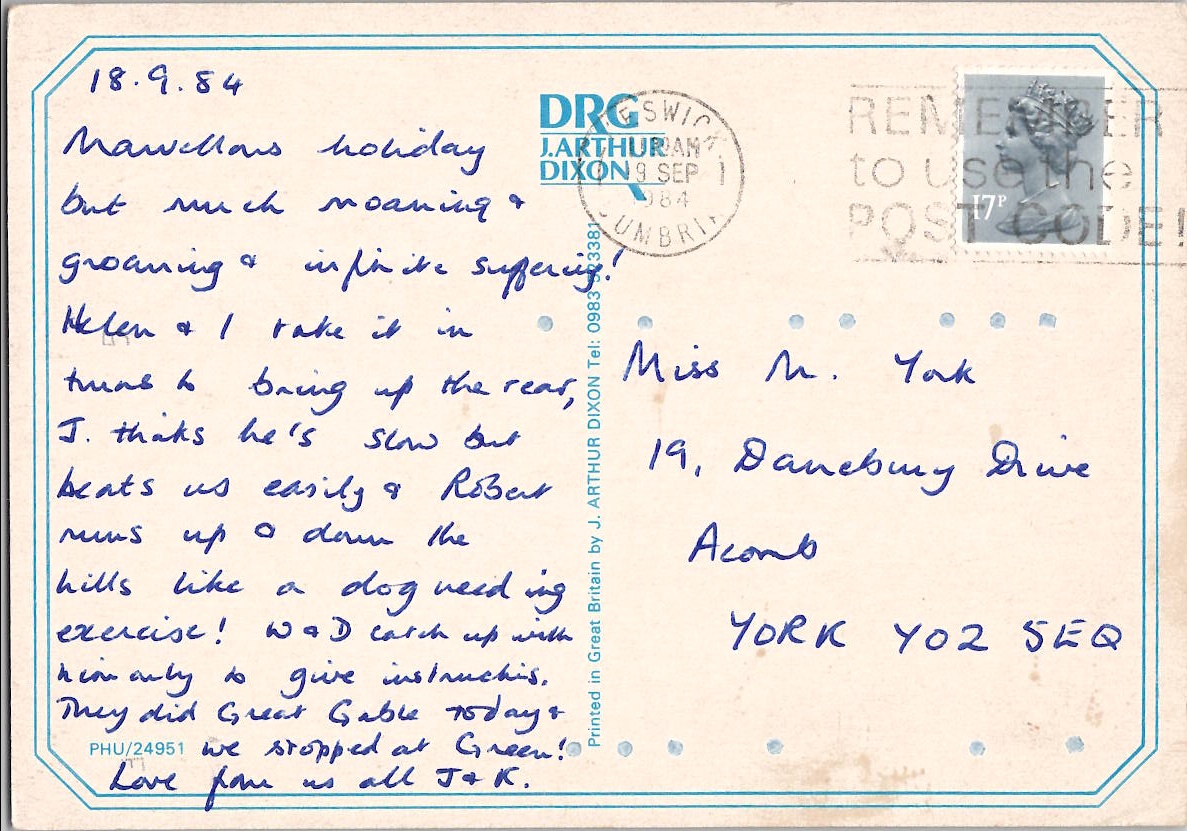 18.9.84
Marvellous holiday
but much moaning &
groaning & infinite suffering!
Helen & I take it in
turns to bring up the rear,
J. thinks he's slow but
beats us easily & Robert
runs up & down the
hills like a dog needing
exercise! W & D catch up with
him only to give instructis.
They did Great Gable today &
we stopped at Green!
Love from us all J & K.
PHU/24951
DRG
J.ARTHUR
DIXON
Printed in Great Britain by J. ARTHUR DIXON Tel: 0983 523381
KESWICK
AM
19 SEP
1984
CUMBRIA
REMEMBER
to use the
POST CODE!
17P
Miss M. York
19, Danebury Drive
Acomb
YORK YO2 5EQ